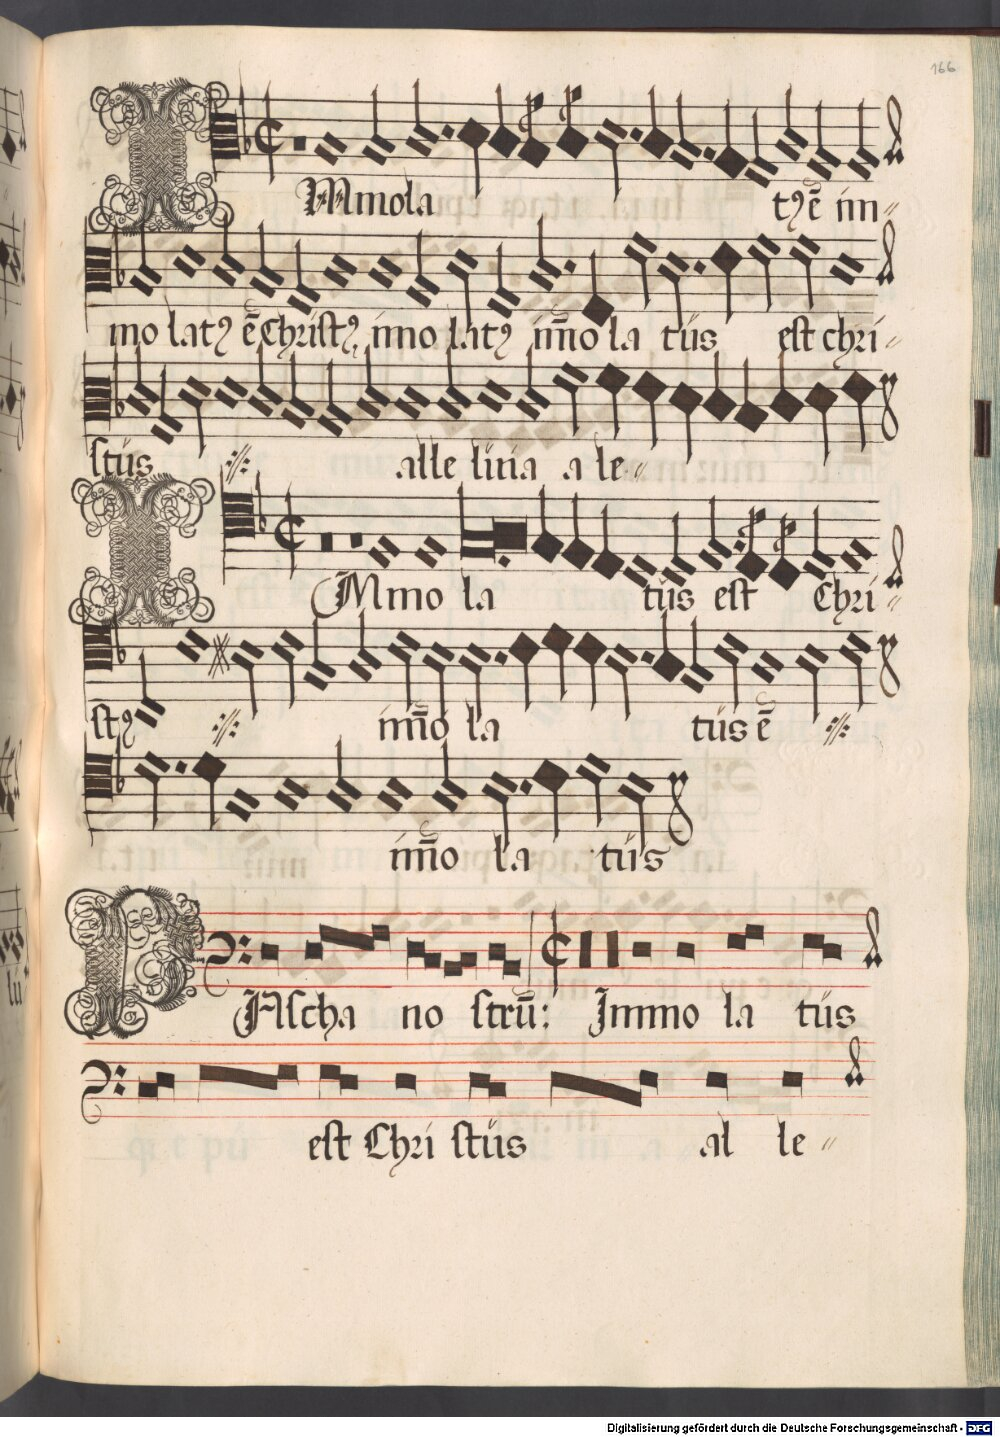 166
IMmola tꝰ ē im〃
mo latꝰ ē Christꝰ, im̄o latꝰ im̄o la tus est chri〃
stus :〃: alle luia a le〃
IMmo la tus est Chri〃
stꝰ :〃: im̄o la tus ē :〃:
im̄o la tus
PAscha no strū: Immo la tus
est Chri stus al le〃
Digitalisierung gefördert durch die Deutsche Forschungsgemeinschaft - DFG